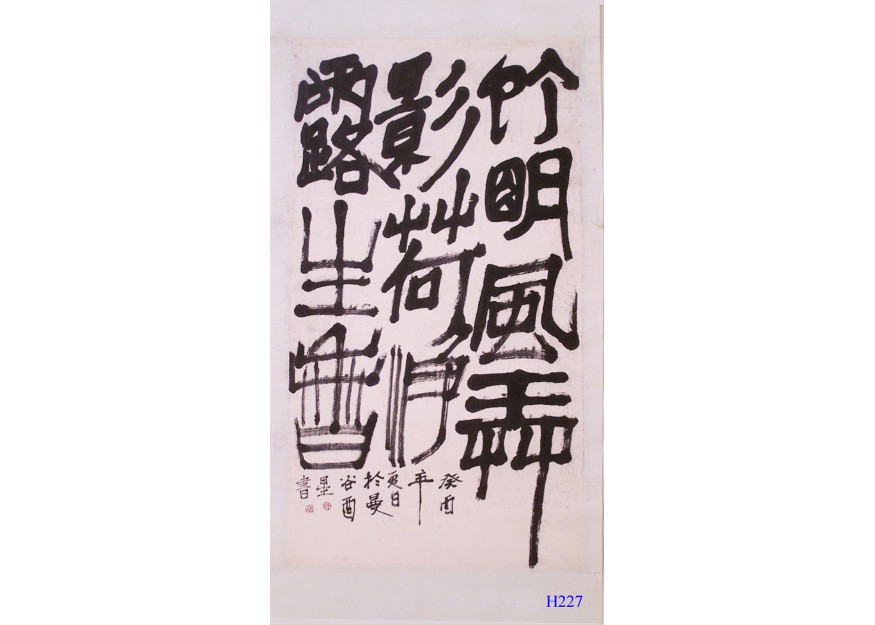 竹明風弄
影荷淨
露生香
癸酉
年
夏日
於曼
谷酉
星
書
H227